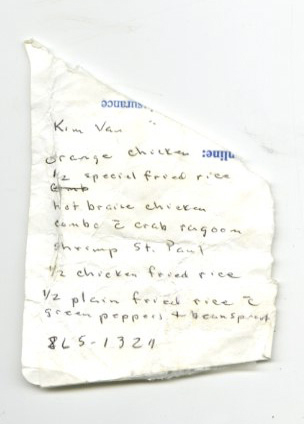 Insurance
nline:
Kim Van
orange chicken
1/2 special fried rice
hot braise chicken
combo c̄ crab ragoon
shrimp St. Paul
1/2 chicken fried rice
1/2 plain fried rice c̄
green peppers + beansprout
865-1321